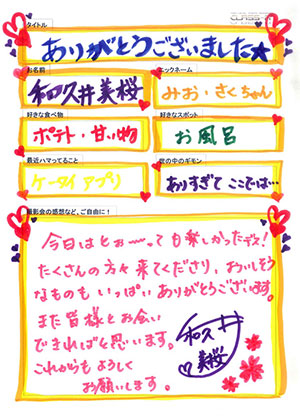 タイトル
ありがとうございました★
お名前
ニックネーム
和久井美桜
みお・さくちゃん
好きな食べ物
好きなスポット
ポテト・甘い物
お風呂
最近ハマってること
世の中のギモン
ケータイアプリ
ありすぎてここでは…
撮影会の感想など、ご自由に!
今日はとぉ〜っても楽しかったデス!
たくさんの方々来てくださり、おいしそう
なものもいっぱいありがとうございます。
また皆様とお会い
できればと思います。
これからもよろしく
お願いします。
和久井
美桜